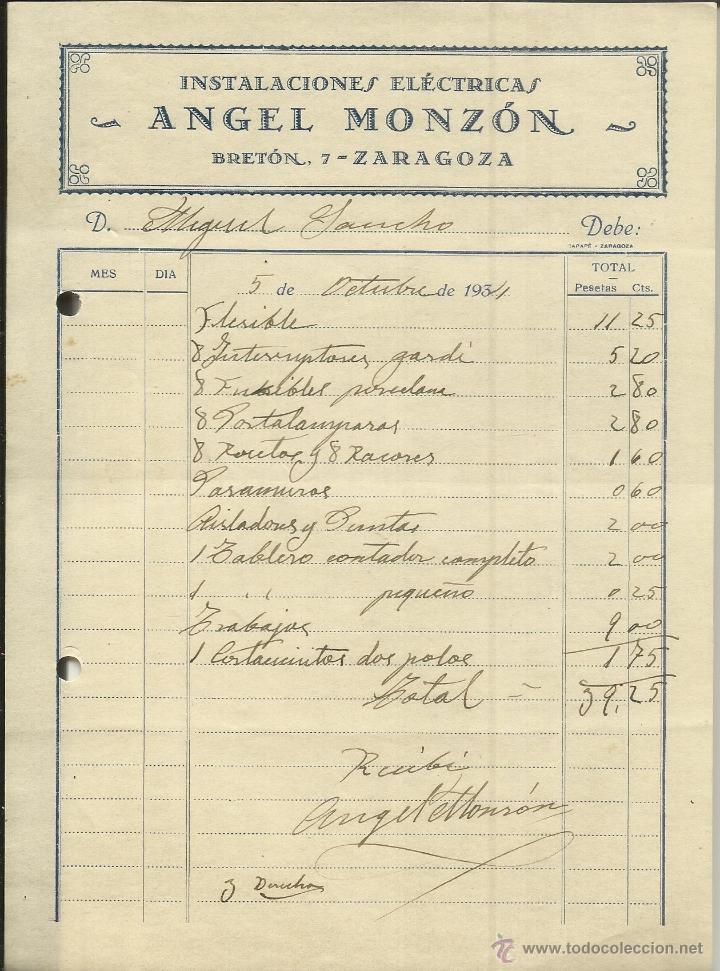 INSTALACIONES ELÉCTRICAS
ANGEL MONZÓN
BRETÓN, 7 - ZARAGOZA
D. Miguel Sancho Debe:
TAPAPÉ - ZARAGOZA
MES DIA TOTAL
5 de Octubre de 1934 Pesetas Cts.
Flexible 11 25
8 Interruptores gardi 5 20
8 Fusibles porcelana 2 80
8 Portalamparas 2 80
8 Rosetas y 8 Racores 1 60
Pasamuros 0 60
Aisladores y Puntas 2 00
1 Tablero contador completo 2 00
1 " " pequeño 0 25
Trabajos 9 00
1 Cortacircuitos dos polos 1 75
Total = 39,25
Recibí
Angel Monzón
3 Derecha
todocoleccion
www.todocoleccion.net